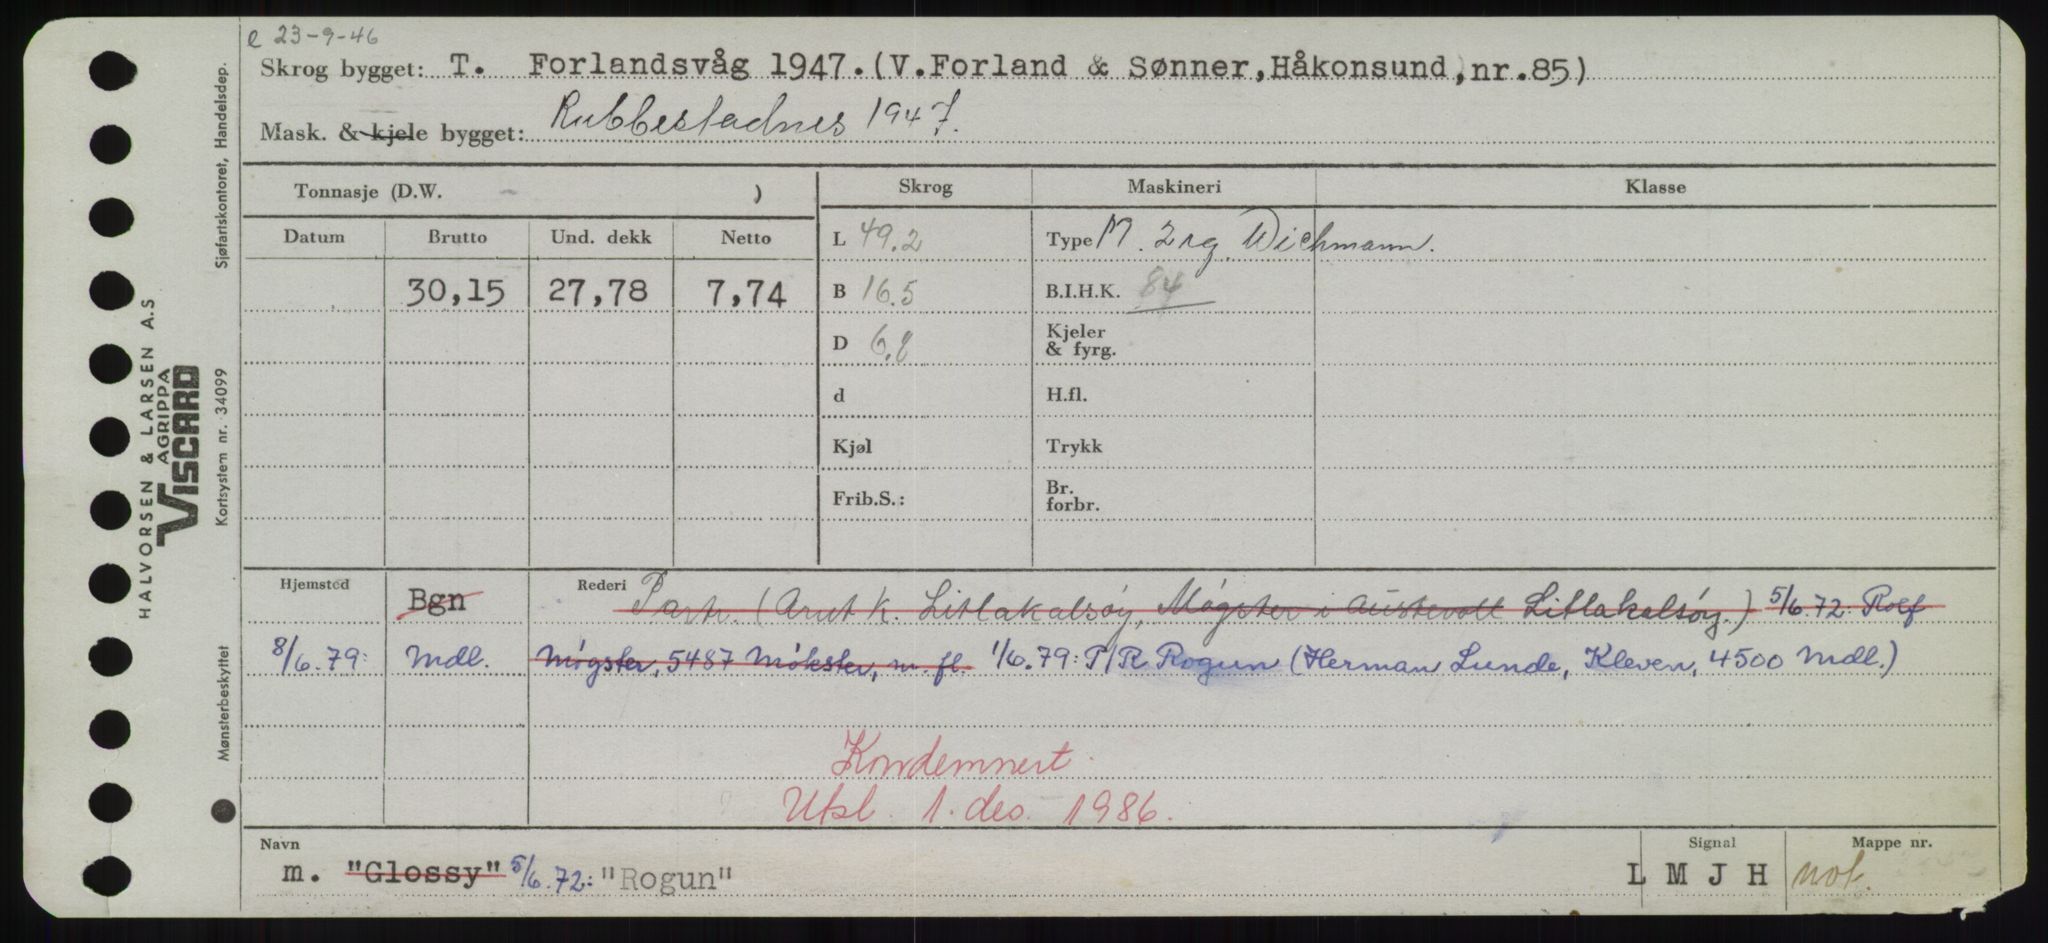 e 23-9-46
Skrog bygget: T. Forlandsvåg 1947. (V. Forland & Sønner, Håkonsund, nr. 85)
Mask. & kjele bygget: Rubbestadnes 1947.
Tonnasje (D.W. - )
Skrog Maskineri Klasse
Datum Brutto Und. dekk Netto
L 49.2 Type M. 2 sg. Wichmann.
30,15 27,78 7,74
B 16.5 B.I.H.K. 84
D 6.8 Kjeler
& fyrg.
d H.fl.
Kjøl Trykk
Frib.S.: Br.
forbr.
Hjemsted Bgn Rederi Partr. (Arnt K. Litlakalsøy, Møgster i Austevoll Litlakalsøy.) 5/6.72: Rolf
8/6.79: Mdl. Møgster, 5487 Møkster, m. fl. 1/6.79: P/R Rogun (Herman Lunde, Kleven, 4500 Mdl.)
Kondemnert.
Utsl. 1. des. 1986.
Navn Signal Mappe nr.
m. "Glossy" 5/6.72: "Rogun" L M J H not.
HALVORSEN & LARSEN A.S
AGRIPPA
VISCARD
Sjøfartskontoret, Handelsdep.
Kortsystem nr. 34099
Mønsterbeskyttet